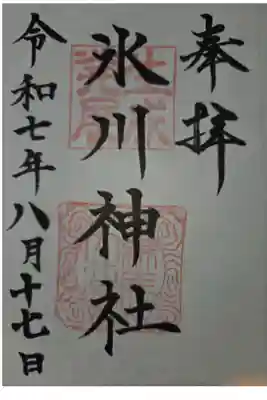 奉拝
氷川神社
令和七年八月十七日